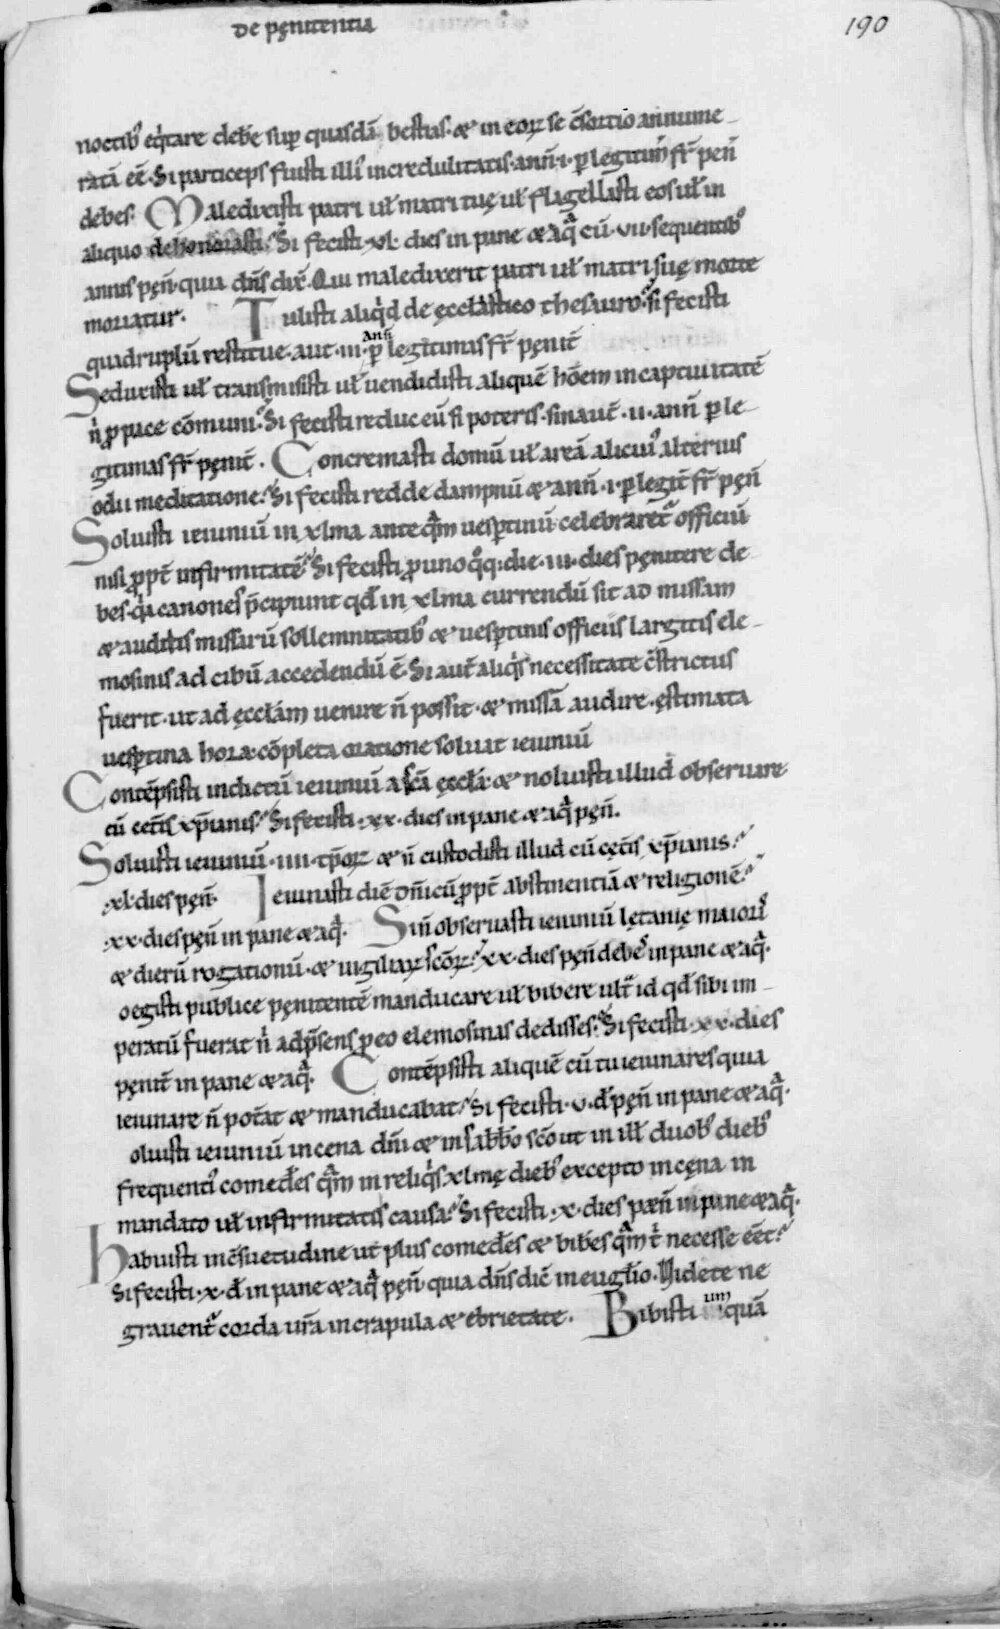 De pęnitentia
190
noctib᾽ eqͥtare deb̄e sup̱ quasdā bestias· ⁊ in eoꝝ se c̄sortio annume-
ratā eē· Si particeps fuisti illi᾽ incredulitatis· ann̄· i· ꝑ legitim̄ fr̄ pen̄
debes· Maledixisti patri uł matri tuę uł flagellasti eos uł in
aliquo dehonorasti? Si fecisti· xl· dies in pane ⁊ aq̄ cū· vii· sequentib᾽
annis pęn̄· quia dn̄s dix̄· Qui maledixerit patri uł matri suę morte
moriatur· Tulisti aliqͥd de ęccl̄astico thesauro? si fecisti
quadruplū restitue· aut· iii· ann̄ ꝑ legitimas fr̄ pęnit̄
Seduxisti uł transmisisti uł uendidisti aliquē hōem in captiuitatē
n̄ ꝓ pace cōmuni? Si fecisti reduc eū si poteris· sin aut̄· ii· ann̄ ꝑ le-
gitimas fr̄ pęnit̄· Concremasti domū uł areā alicui᾽ alterius
odii meditatione? Si fecisti redde dampnū ⁊ ann̄· i· ꝑ legit̄ fr̄ pęn̄
Soluisti ieiuniū in xlma antequā uesꝑtinū celebraret᾽ officiū
nisi ꝓpt̄ infirmitatē? Si fecisti ꝓ uno q᷎q; die· iii· dies pęnitere de-
bes· qͥa canones p̄cipiunt qd̄ in xlma currendū sit ad missam
⁊ auditis missarū sollemnitatib᾽ ⁊ uesꝑtinis officiis largitis ele-
mosinis ad cibū accedendū ē· Si aut̄ aliqͥs necessitate c̄strictus
fuerit· ut ad ęccl̄am uenire n̄ possit· ⁊ missā audire· ęstimata
uesꝑtina hora· cōpleta oratione soluat ieiuniū
Contēpsisti indictū ieiuniū a sc̄a ęccl̄a· ⁊ noluisti illud obseruare
cū cet̄is xp̄ianis? Si fecisti· xx· dies in pane ⁊ aq̄ pęn̄.
Soluisti ieiuniū· iiii· tp̄oꝝ ⁊ n̄ custodisti illud cū cęt̄is xp̄ianis?
·xl· dies pęn̄· Ieiunasti diē dn̄icū ꝓpt̄ abstinentiā ⁊ religionē?
·xx· dies pęn̄ in pane ⁊ aq̄· Si n̄ obseruasti ieiuniū lętanię maiori᾽
⁊ dierū rogationū· ⁊ uigiliaꝝ sc̄oꝝ? xx· dies pęn̄ debes in pane ⁊ aq̄·
oegisti publice pęnitentē manducare uł bibere ultͣ id qd̄ sibi im-
peratū fuerat n̄ ad p̄sens ꝑ eo elemosinas dedisses? Si fecisti· xx· dies
pęnit̄ in pane ⁊ aq̄· Contēpsisti aliquē cū tu ieiunares quia
ieiunare n̄ pot̄at ⁊ manducabat? Si fecisti· v· d̄ pęn̄ in pane ⁊ aq̄·
oluisti ieiuniū in cena dn̄i ⁊ in sabb̄o sc̄o ut in ill̄ duob᾽ dieb᾽
frequenti᾽ comed̄es qͣm in reliqͥs xlmę dieb᾽ excepto in cęna in
mandato uł infirmitatis causa? Si fecisti· x· dies pæn̄ in pane ⁊ aq̄·
Habuisti in c̄suetudine ut plus comed̄es ⁊ bib̄es qͣm t᷎ necesse eēt?
Si fecisti· x· d̄ in pane ⁊ aq̄ pęn̄· quia dn̄s dic̄ in eugl̄io· Videte ne
grauent᾽ corda ur̄a in crapula ⁊ ebrietate· Bibisti umquā